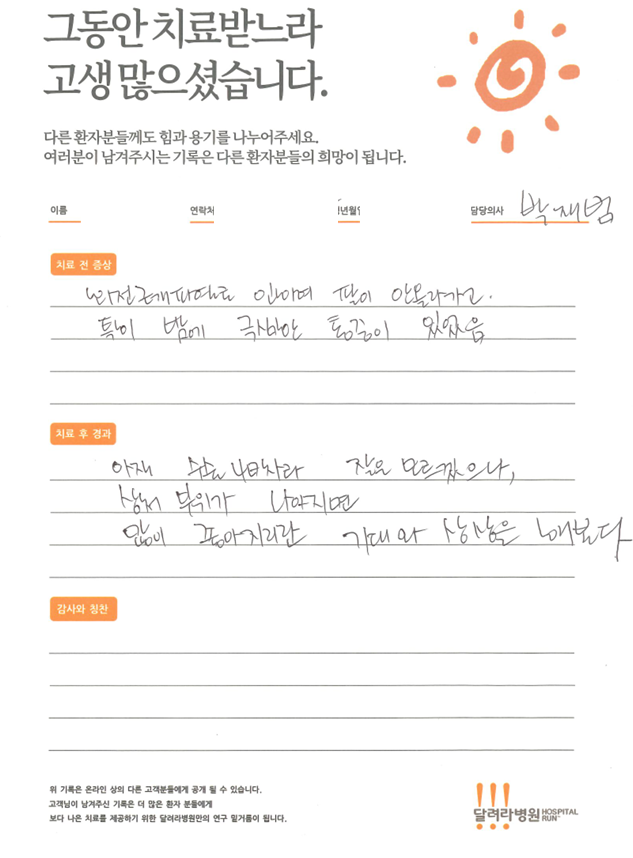 그동안 치료받느라
고생 많으셨습니다.
다른 환자분들께도 힘과 용기를 나누어주세요.
여러분이 남겨주시는 기록은 다른 환자분들의 희망이 됩니다.
이름 연락처 년월일 담당의사 박재범
치료 전 증상
회전근개파열로 인하여 팔이 안올라가고.
특히 밤에 극심한 통증이 있었음
치료 후 경과
아재 수술 4일차라 잘은 모르겠으나,
상처 부위가 나아지면
많이 좋아지리란 기대와 상상을 해본다
감사와 칭찬
위 기록은 온라인 상의 다른 고객분들에게 공개 될 수 있습니다.
고객님이 남겨주신 기록은 더 많은 환자 분들에게
보다 나은 치료를 제공하기 위한 달려라병원만의 연구 밑거름이 됩니다.
달려라병원 HOSPITAL RUN